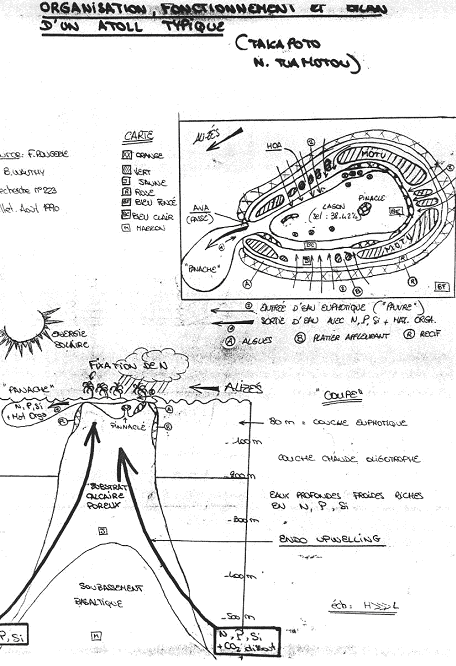 ORGANISATION, FONCTIONNEMENT ET BILAN
D'UN ATOLL TYPIQUE
(TAKAPOTO
N. TUAMOTOU)
F. ROUGERIE
B. WAUTHY
Recherche n°223
Juillet. Août 1990
CARTE
ORANGE
VERT
JAUNE
R ROSE
BF BLEU FONCÉ
BC BLEU CLAIR
M MARRON
ALIZÉS
HOA
MOTU
ANA
(PASSE)
LAGON
Sel : 38.42‰
PINACLE
BC
"PANACHE"
MOTU
A
B
R
BF
① ENTRÉE D'EAU EUPHOTIQUE ("PAUVRE")
② SORTIE D'EAU AVEC N, P, Si + MAT. ORGA.
A ALGUES B PLATIER AFFLEURANT R RECIF
ENERGIE
SOLAIRE
FIXATION DE N
"PANACHE"
ALIZÉS
"COUPE"
N, P, Si
+ Mat Orga
A
R
PINNACLE
80 m = COUCHE EUPHOTIQUE
-100 m
COUCHE CHAUDE OLIGOTROPHE
-200 m
SUBSTRAT
CALCAIRE
POREUX
EAUX PROFONDES FROIDES RICHES
EN N, P, Si
-300 m
J
ENDO UPWELLING
-400 m
SOUBASSEMENT
BASALTIQUE
éch: H>>>L
-500 m
P, Si
M
N, P, Si
+ CO2 dissout